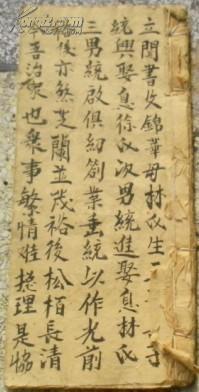 立閧書父錦華母林氏生三子
統興娶息徐氏次男統進娶息林氏
三男統啟俱幼創業垂統以作光前
後亦然芝蘭並茂裕後松柏長清
吾治家也衆事繁情难揔理是恊